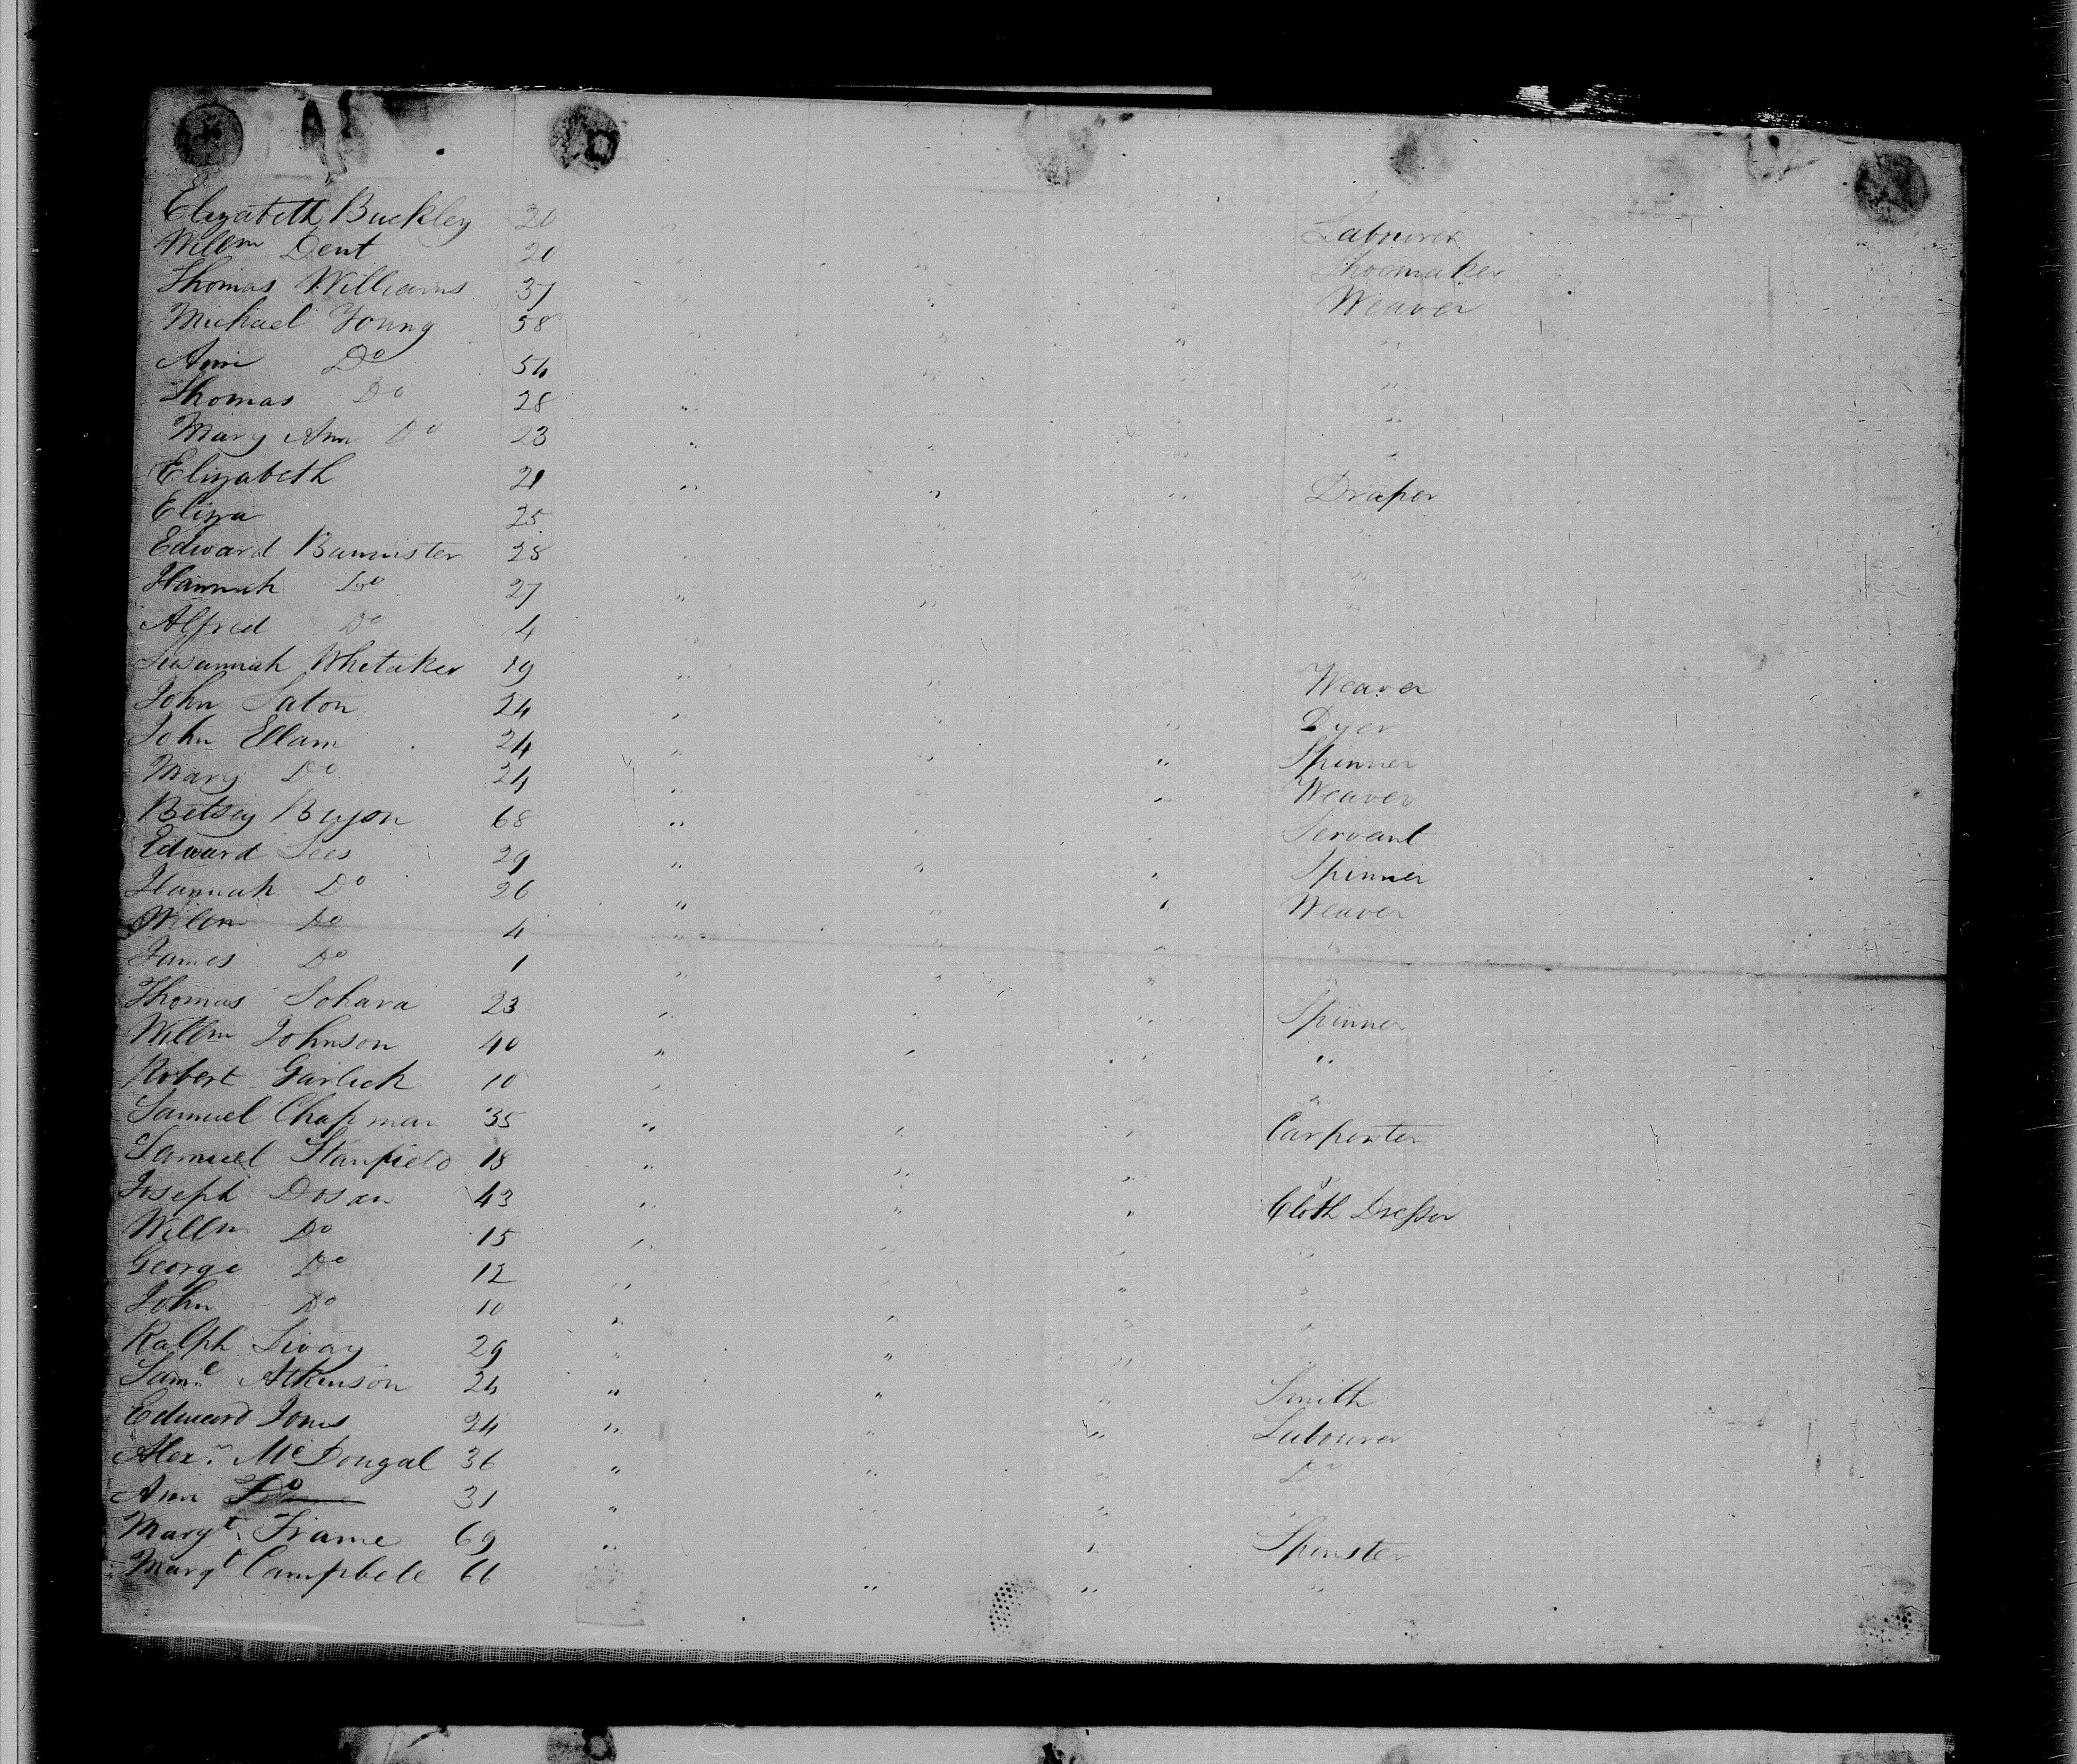 Elizabeth Buckley 20 " Labourer
Willm Dent 20 " " " Shoemaker
Thomas Williams 37 " " " Weaver
Michael Young 58 " "
Ann Do 54 " " " "
Thomas Do 28 " " " "
Mary Ann Do 23 " " " "
Elizabeth 21 " " " Draper
Eliza 25 " "
Edward Bannister 28 " " "
Hannah Do 27 " " " "
Alfred Do 4 " "
Susannah Whitaker 19 " " Weaver
John Saton 24 " " " Dyer
John Ellam 24 " " " Spinner
Mary Do 24 " " " Weaver
Betsey 68 " " " Servant
Edward Lees 29 " " " Spinner
Hannah Do 26 " " " Weaver
Willm Do 4 " " " "
James Do 1 " " " "
Thomas 23 " " " Spinner
Willm Johnson 40 " " " "
Robert Garlick 10 " "
Samuel Chapman 35 " " " Carpenter
Samuel Stanfield 18 " " "
Joseph Dosan 43 " " " Cloth Dresser
Willm Do 15 " " " "
George Do 12 " " " "
John Do 10 " " " "
Ralph 29 " " "
Saml Atkinson 24 " " " Smith
Edward Jones 24 " " " Labourer
Alexr McDougal 36 " " " Do
Ann Do 31 " " " "
Margt Frame 69 " " " Spinster
Margt Campbell 66 " " "